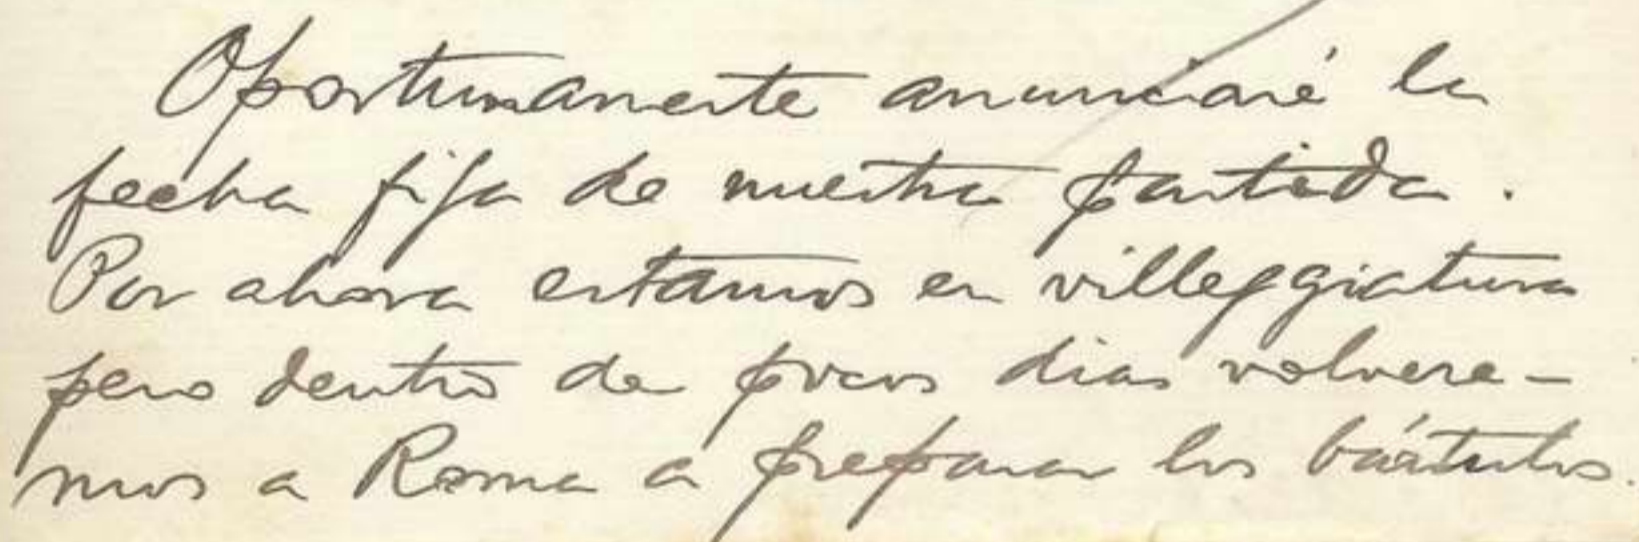 Oportunamente anunciaré la
fecha fija de nuestra partida.
Por ahora estamos en villeggiatura
pero dentro de pocos dias volvere-
mos a Roma a preparar los bártulos.